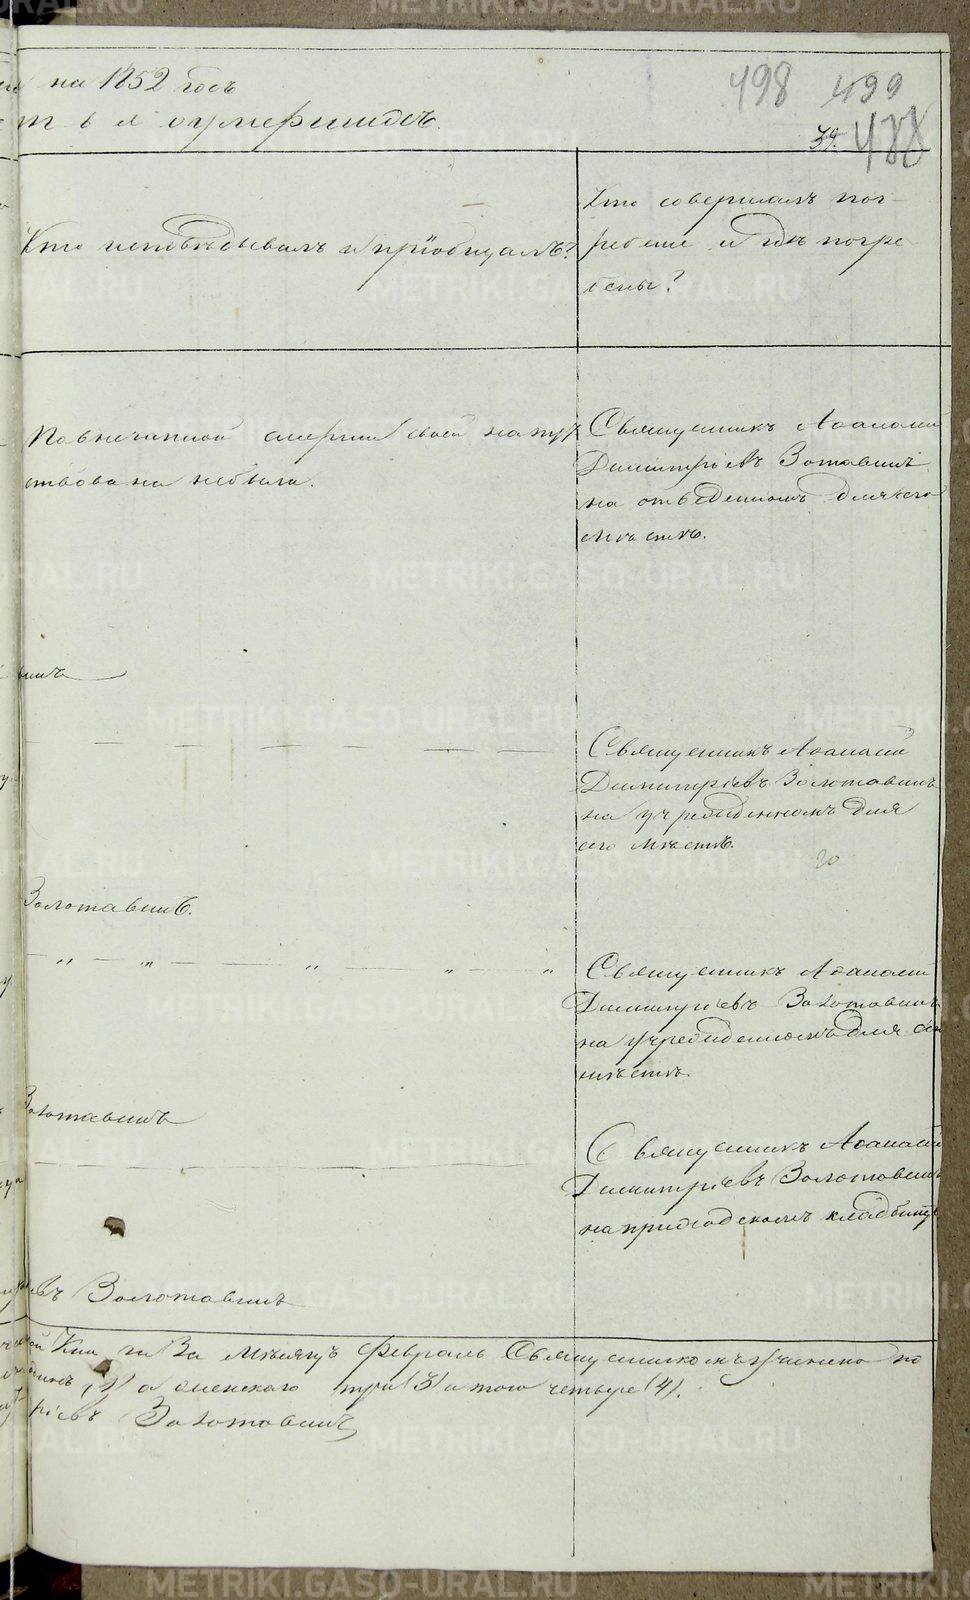 на 1852 годъ
498 499
тья о умершихъ.
39. 488
Кто исповѣдывалъ и пріобщалъ?
Кто совершалъ пог-
ребеніе и гдѣ погре
бены?
По внечапной смерти своей напут
ствована небыла.
Священникъ Аѳанасій
Димитріевъ Зотавинъ
на отведенномъ для сего
мѣстѣ.
винъ
Священникъ Аѳанасій
Димитріевъ Золотавинъ
на учрежденномъ для
сего мѣстѣ.
Золотавинъ.
Священникъ Аѳанасій
Димитріевъ Золотавинъ
на учрежденномъ для
мѣстѣ.
Золотавинъ
Священникъ Аѳанасій
Димитріевъ Золотовинъ
на приходскомъ кладбищѣ
въ Золотавинъ
за мѣсяцъ Февраль Священникомъ учинено по
а женскаго три (3) итого четыре (4).
ріевъ Золотавинъ
METRIKI.GASO-URAL.RU